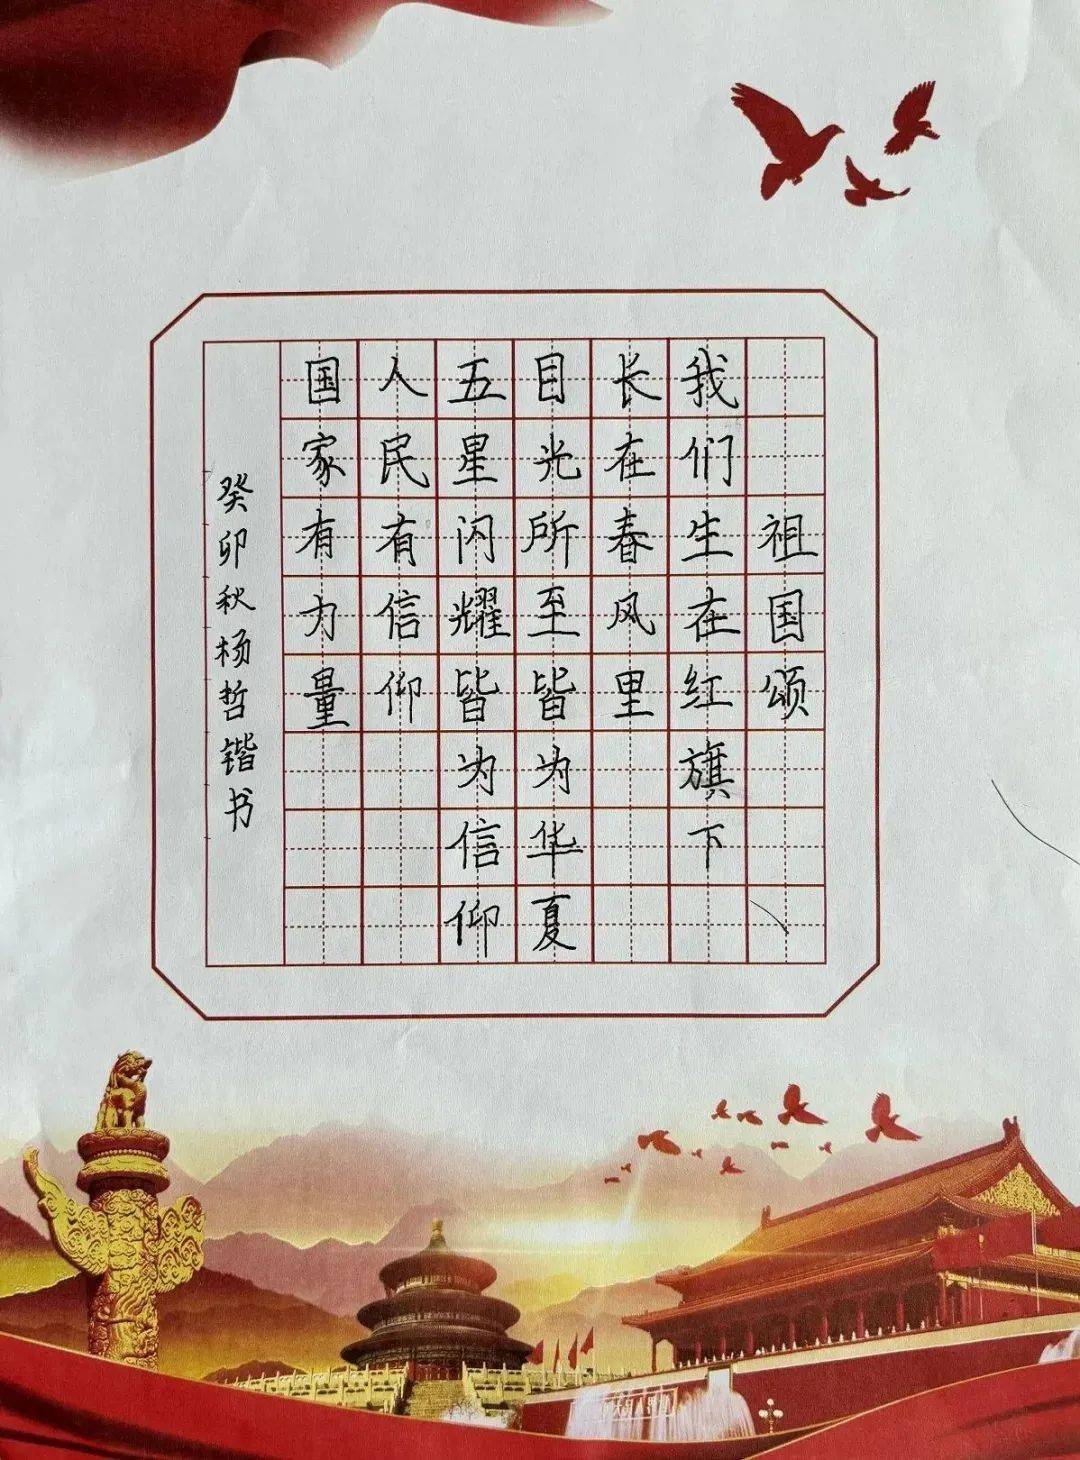 祖国颂
我们生在红旗下
长在春风里
目光所至皆为华夏
五星闪耀皆为信仰
人民有信仰
国家有力量
癸卯秋杨哲锴书